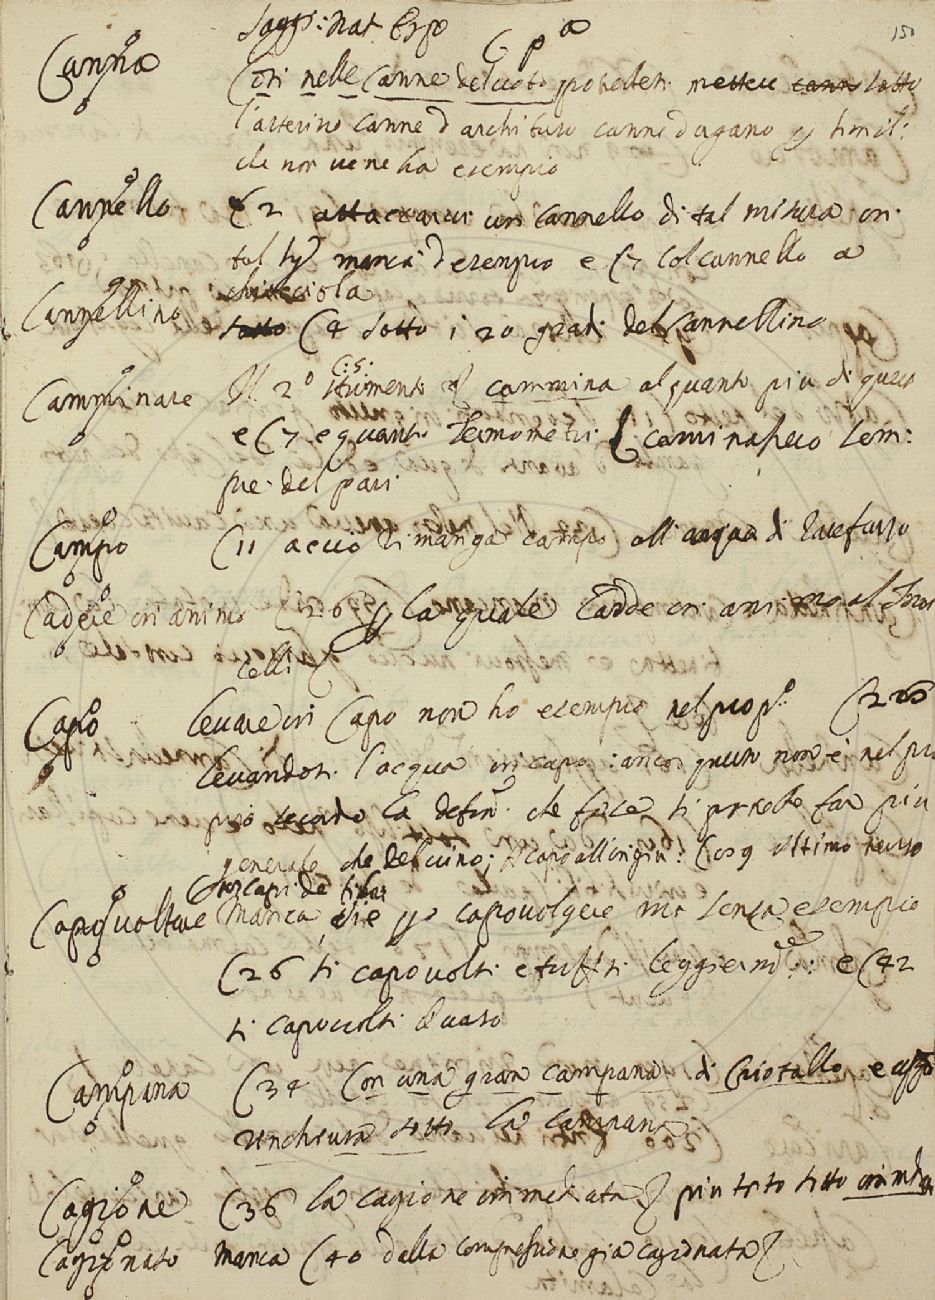 Saggi: Nat Espe C p a
150
Canna Così nelle Canne del voto potrebbesi mettere canna sotto
l'arterino canne d'architturo canne d'organo e simil:
che non ve ne ha esempio
Cannello C 2 attaccarvi un Cannello di tal misura in
tal manca d'esempio e C 7 col cannello a
chiocciola
Cannellino sotto C 4 sotto i 20 gradi del Cannellino
C: 5:
Camminare Il 2º strumento cammina alquanto più di questo
e C 7 e quanti termometri caminassero sem:
pre del pari
Campo C 11 acciò rimanga campo all'acqua di
Cadere in animo C 26 la quale cadde in animo al Torri
celli
Capo levare in Capo non ho esempio nel prop.º C 226
levandosi l'acqua in capo: ancor questo non è nel pro
prio secondo la defin. che forse si potrebbe far più
generale che del vino; capo all'ingiù: C 9 ultimo verso
Capovoltare manca che capovolgere ma senza esempio
C 26 si capovolti e tuffisi leggierm.te: e C 42
si capovolti il vaso
Campana C 34 Con una gran campana di Cristallo e
rinchiusa sotto la campana
Cagione C 36 la cagione immediata più tosto sotto immed
Cagionato manca C 40 dalla compressione già cagionata